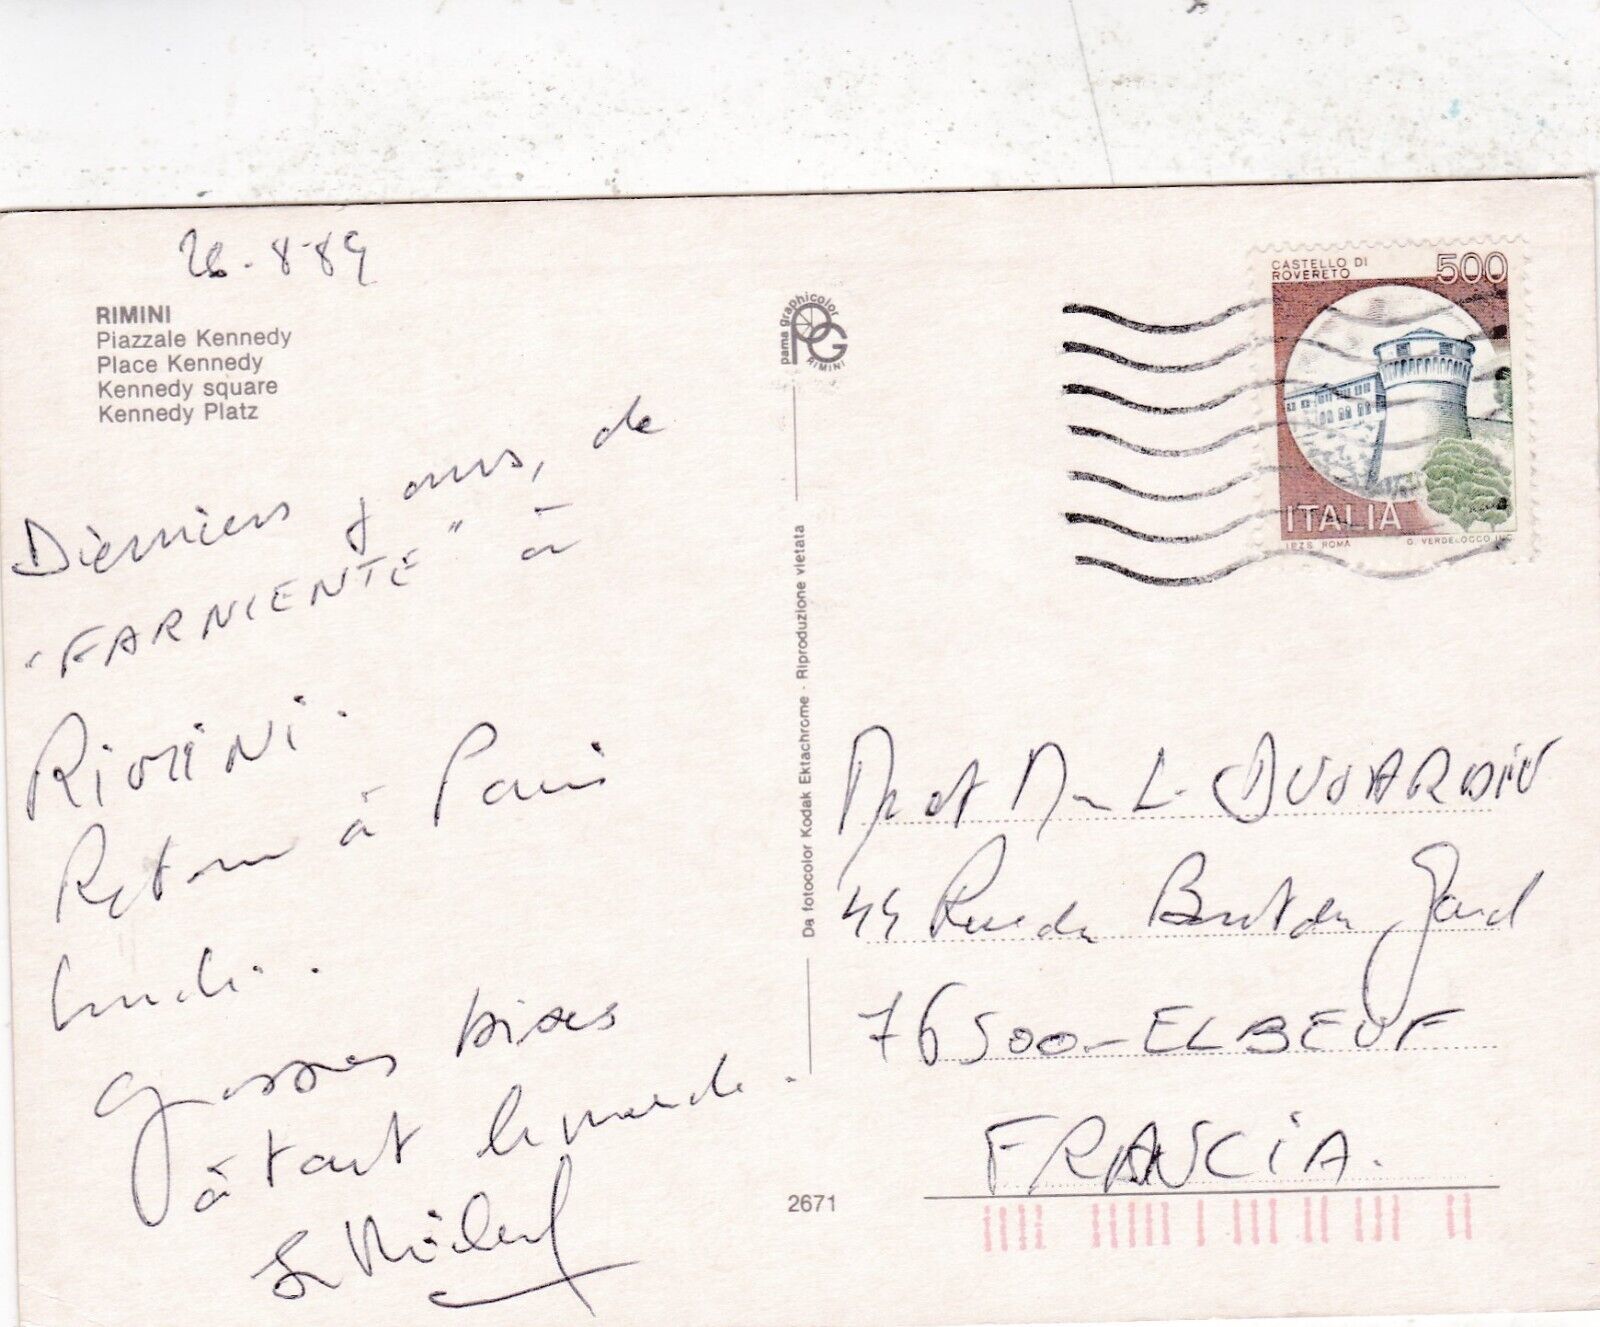 26-8-89
RIMINI
Piazzale Kennedy
Place Kennedy
Kennedy square
Kennedy Platz
Derniers jours, de
"FARNIENTE" à
RiMiNi.
Retour à Paris
Lundi.
grosses bises
à tout le monde.
pama graphicolor
PG
RIMINI
Da fotocolor Kodak Ektachrome - Riproduzione vietata
2671
CASTELLO DI
ROVERETO
500
ITALIA
I.P.Z.S. ROMA
G. VERDELOCCO INC.
Mr et Mme L. DUJARDIN
44 Rue du
76500-ELBEUF
FRANCIA.